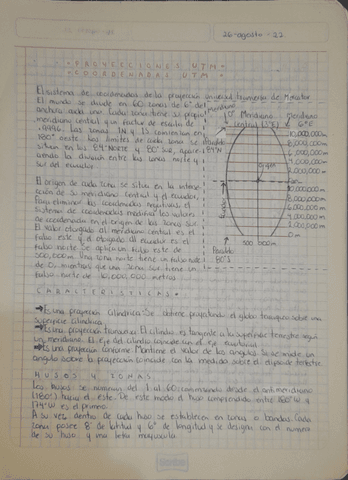 26-agosto-22
PROYECCIONES UTM
COORDENADAS UTM
El sistema de coordenadas de la proyección universal transversa de Mercator.
El mundo se divide en 60 zonas de 6° de
anchura cada una. Cada zona tiene su propio
meridiano central y un factor de escala de
.9996. Las zonas 1N y 1S comienzan en
180° oeste. Los límites de cada zona se
sitúan en los 84° NORTE y 80° SUR,
siendo la división entre las zonas norte y
sur del ecuador.
0° Meridiano
central (3°E)
Meridiano
6°E
10,000,000m
8,000,000m
6,000,000m
4,000,000m
2,000,000m
Origen
10,000,000m
8,000,000m
6,000,000m
4,000,000m
2,000,000m
0m
500 000m
Paralelo
80°S
El origen de cada zona se sitúa en la interse-
cción de su meridiano central y el ecuador.
Para eliminar las coordenadas negativas, el
sistema de coordenadas modifica los valores
de coordenadas en el origen de las zonas sur.
El valor otorgado al meridiano central es el
falso este y el otorgado al ecuador es el
falso norte. Se aplica un falso este de
500,000m. Una zona norte tiene un falso norte
de 0, mientras que una zona sur tiene un
falso norte de 10,000,000 metros
CARACTERISTICAS
Es una proyección cilíndrica: Se obtiene proyectando el globo terráqueo sobre una
superficie cilíndrica
Es una proyección transversa: El cilindro es tangente a la superficie terrestre según
un meridiano. El eje del cilindro coincide con el eje ecuatorial
Es una proyección conforme: Mantiene el valor de los ángulos. Si se mide un
ángulo sobre la proyección coincide con la medida sobre el elipsoide terrestre
HUSOS Y ZONAS
Los husos: Se numeran del 1 al 60 comenzando desde el antimeridiano
(180°) hacia el este. De este modo el huso comprendido entre 180°W y
174°W es el primero.
A su vez, dentro de cada huso se establecen en zonas o bandas. Cada
zona posee 8° de latitud y 6° de longitud y se designa con el numero
de su huso y una letra mayuscula.